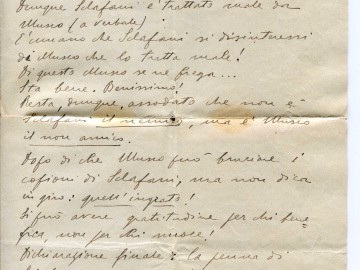 Dunque Sclafani è trattato male da
Musco (a verbale)!
È umano che Sclafani si disinteressi
di Musco che lo tratta male!
Di questo Musco se ne frega...
Sta bene. Benissimo!
Resta, dunque, assodato che non è
Sclafani il nemico, ma è Musco
il non amico.
Dopo di che Musco può bruciare i
copioni di Sclafani, ma non dica
in giro: quell'ingrato!
Si può avere gratitudine per chi bene-
fica, non per chi nuoce!
Dichiarazione finale: la penna di